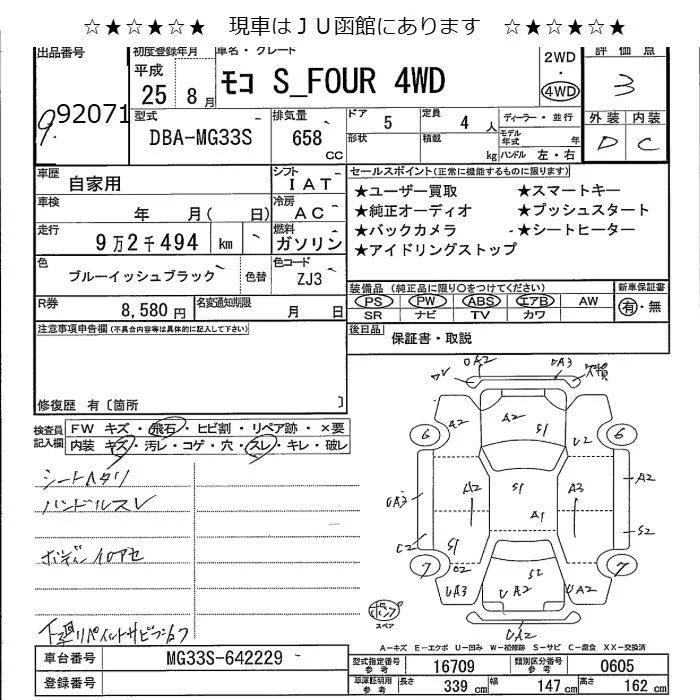 ☆★☆★☆★ 現車はJU函館にあります ☆★☆★☆★
出品番号 初度登録年月 車名・グレード 2WD 評価点
92071 平成 25年 8月 モコ S_FOUR 4WD ・ 4WD 3
外装 内装
D C
型式 排気量 ドア 定員 ディーラー・並行
DBA-MG33S 658 CC 5 4人
形状 積載 kg モデル年式 年
ハンドル 左・右
車歴 自家用 シフト IAT
車検 年 月( 日) 冷房 AC
走行 9万2千494 km 燃料 ガソリン
色 ブルーイッシュブラック 色替 色コード ZJ3
R券 8,580円 名変通知期限 月 日
セールスポイント(正常に機能するものに限ります)
★ユーザー買取 ★スマートキー
★純正オーディオ ★プッシュスタート
★バックカメラ ★シートヒーター
★アイドリングストップ
装備品(純正品に限り○をつけてください) 新車保証書
PS PW ABS エアB AW 有・無
SR ナビ TV カワ
後日品 保証書・取説
注意事項申告欄(不具合内容等は具体的に記入して下さい)
修復歴 有〔箇所 〕
検査員記入欄 FW キズ・飛石・ヒビ割・リペア跡・×要
内装 キズ・汚レ・コゲ・穴・スレ・キレ・破レ
シートヘタリ
ハンドルスレ
下廻リペイントサビ
UA2 UA3 欠損
A2 A2
6 S1 U2 6
A2 S1 A3 A2
UA3 A1
C2 S1 S2
7 C2 S2 7
UA3 UA2 UA2
UA2
スペア
A-キズ E-エクボ U-凹み W-補修跡 S-サビ C-腐食 XX-交換済
車台番号 MG33S-642229
登録番号
型式指定番号 参考 16709 類別区分番号 参考 0605
車庫証明用 参考 長さ 339 cm 幅 147 cm 高さ 162 cm